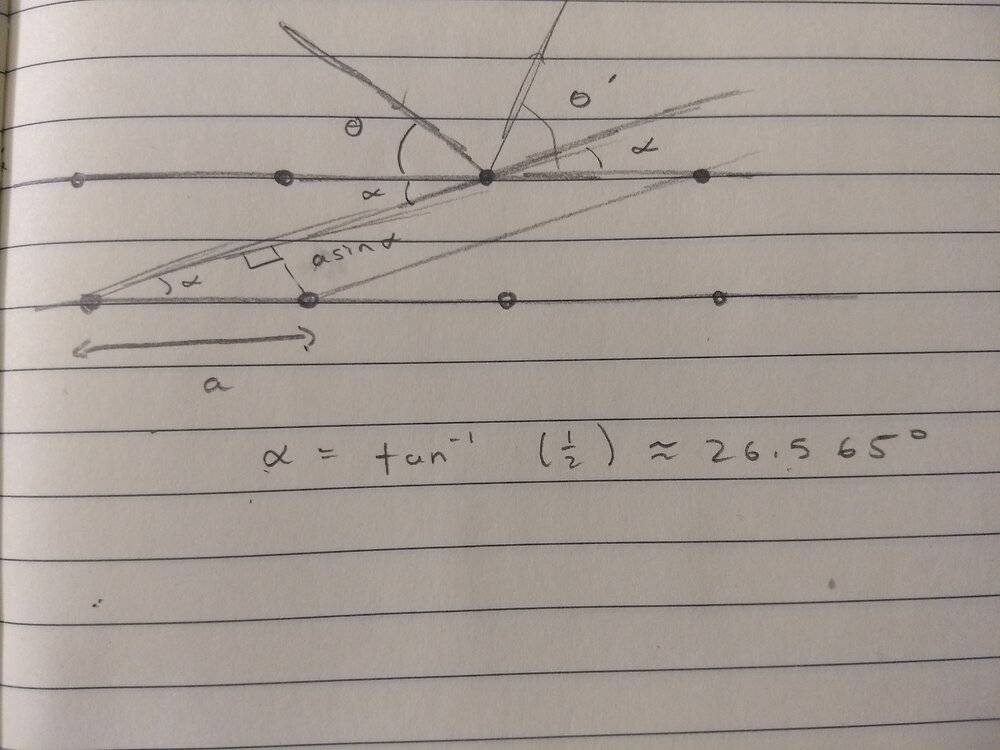 θ θ′
α
α
a sin α
α
a
α = tan⁻¹ (1/2) ≈ 26.565°